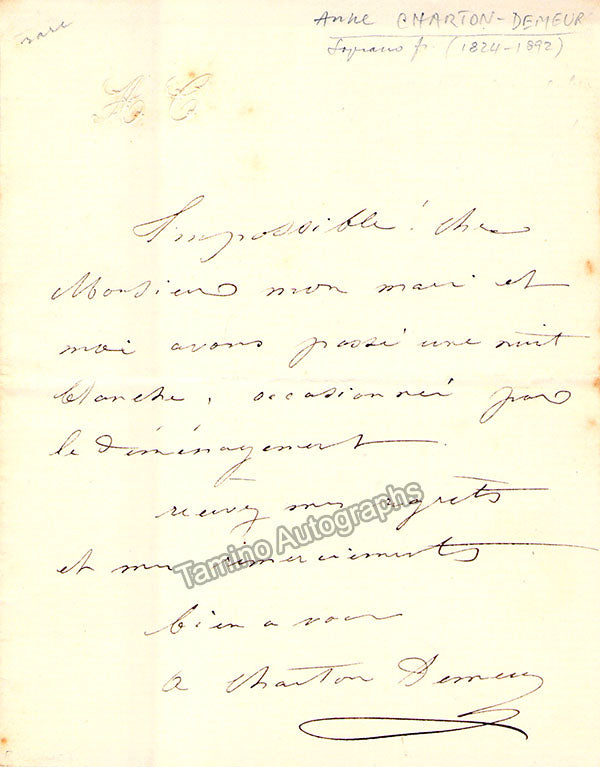 rare
Anne CHARTON-DEMEUR
Soprano fr. (1824-1892)
A. C.
Impossible! cher
Monsieur mon mari et
moi avons passé une nuit
blanche, occasionnée par
le déménagement.
recevez mes regrets
et mes remerciements
Tamino Autographs
bien a vous
A Charton Demeur